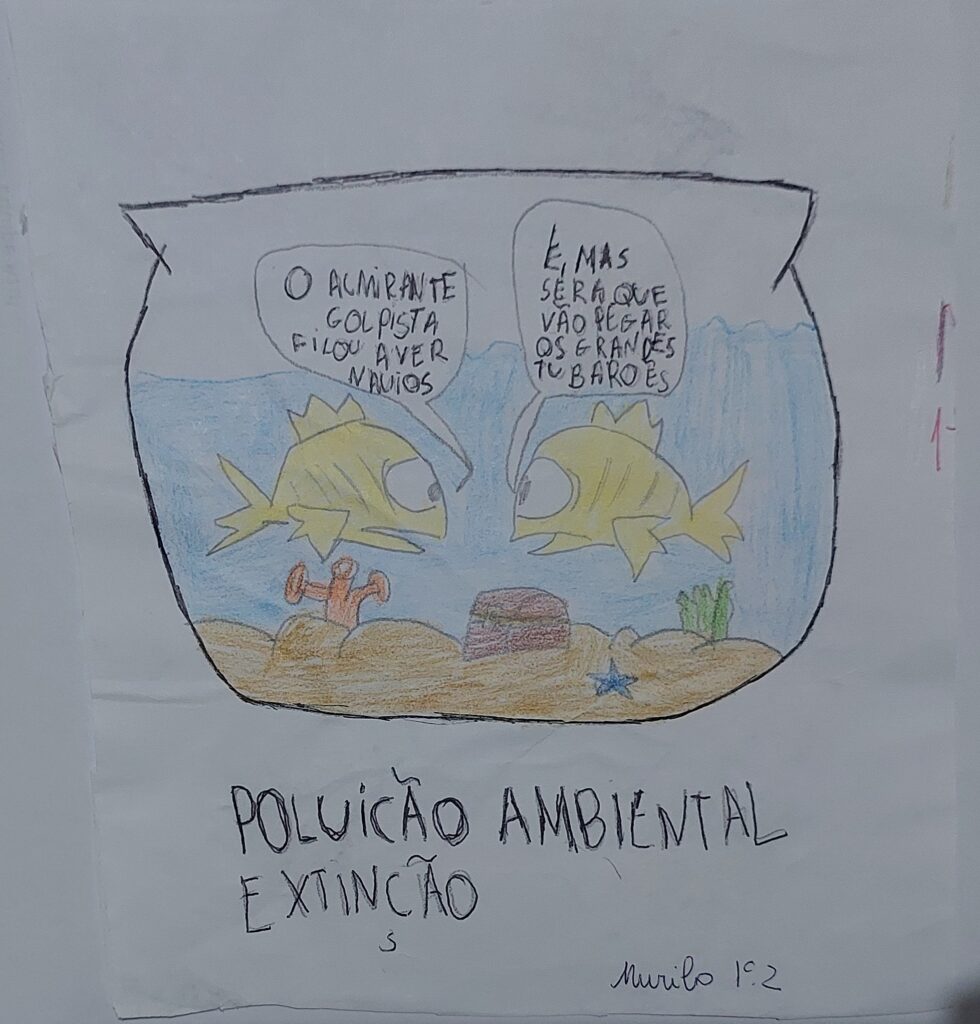 O ALMIRANTE
GOLPISTA
FILOU A VER
NAVIOS
É, MAS
SERA QUE
VÃO PEGAR
OS GRANDES
TU BAROES
POLUIÇÃO AMBIENTAL
EXTINÇÃO
Murilo 1º.2